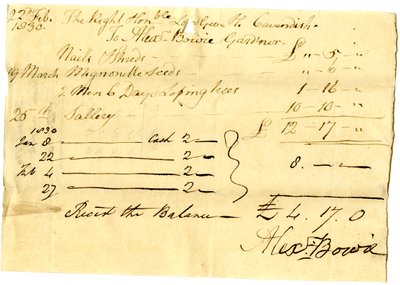 22d Feb. The Right Honble Lord Geo. H. Cavendish
1830. To Alexr Bowie Gardner
Nails & Shreds - £ " - 5 - "
19 March Mignonette Seeds " - 6 - "
2 Men 6 Days Loping trees 1 - 16 - "
25th Sallery - 10 - 10 - "
£ 12 - 17 - "
1830
Jan 8 Cash 2 -
22 2 -
Feb 4 2 - 8. - -
27 2 -
Recd the Balance - £ 4. 17. 0
Alexr Bowie